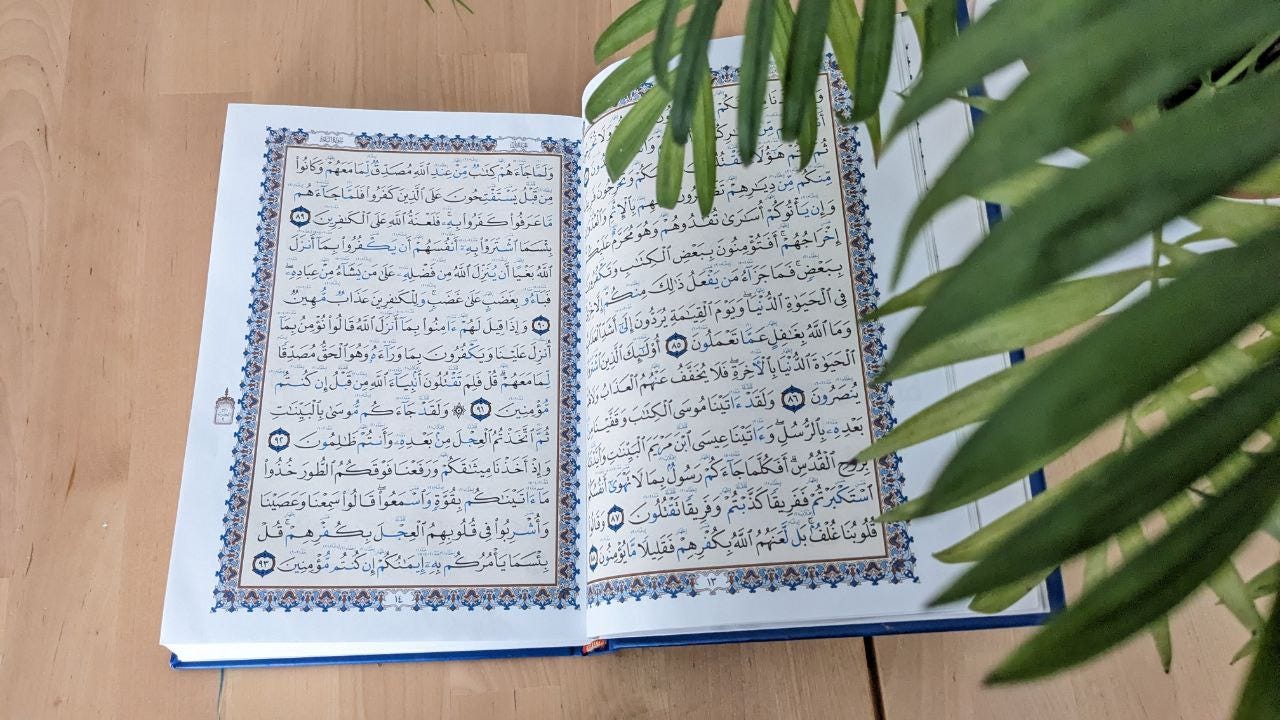 هَٰٓؤُلَآءِ
مِّن دِيَٰرِهِمْ
وَإِن يَأْتُوكُمْ أُسَٰرَىٰ تُفَٰدُوهُمْ وَهُوَ مُحَرَّمٌ
إِخْرَاجُهُمْ ۚ أَفَتُؤْمِنُونَ بِبَعْضِ ٱلْكِتَٰبِ وَتَكْفُرُونَ
بِبَعْضٍ ۚ فَمَا جَزَآءُ مَن يَفْعَلُ ذَٰلِكَ مِنكُمْ إِلَّا خِزْىٌ
فِى ٱلْحَيَوٰةِ ٱلدُّنْيَا ۖ وَيَوْمَ ٱلْقِيَٰمَةِ يُرَدُّونَ إِلَىٰٓ أَشَدِّ ٱلْعَذَابِ
وَمَا ٱللَّهُ بِغَٰفِلٍ عَمَّا تَعْمَلُونَ ٨٥ أُو۟لَٰٓئِكَ ٱلَّذِينَ ٱشْتَرَوُا۟
ٱلْحَيَوٰةَ ٱلدُّنْيَا بِٱلْءَاخِرَةِ ۖ فَلَا يُخَفَّفُ عَنْهُمُ ٱلْعَذَابُ وَلَا هُمْ
يُنصَرُونَ ٨٦ وَلَقَدْ ءَاتَيْنَا مُوسَى ٱلْكِتَٰبَ وَقَفَّيْنَا مِنۢ
بَعْدِهِۦ بِٱلرُّسُلِ ۖ وَءَاتَيْنَا عِيسَى ٱبْنَ مَرْيَمَ ٱلْبَيِّنَٰتِ وَأَيَّدْنَٰهُ
بِرُوحِ ٱلْقُدُسِ ۗ أَفَكُلَّمَا جَآءَكُمْ رَسُولٌۢ بِمَا لَا تَهْوَىٰٓ أَنفُسُكُمُ
ٱسْتَكْبَرْتُمْ فَفَرِيقًا كَذَّبْتُمْ وَفَرِيقًا تَقْتُلُونَ ٨٧ وَقَالُوا۟
قُلُوبُنَا غُلْفٌۢ ۚ بَل لَّعَنَهُمُ ٱللَّهُ بِكُفْرِهِمْ فَقَلِيلًا مَّا يُؤْمِنُونَ ٨٨
١٣
وَلَمَّا جَآءَهُمْ كِتَٰبٌ مِّنْ عِندِ ٱللَّهِ مُصَدِّقٌ لِّمَا مَعَهُمْ وَكَانُوا۟
مِن قَبْلُ يَسْتَفْتِحُونَ عَلَى ٱلَّذِينَ كَفَرُوا۟ فَلَمَّا جَآءَهُم
مَّا عَرَفُوا۟ كَفَرُوا۟ بِهِۦ ۚ فَلَعْنَةُ ٱللَّهِ عَلَى ٱلْكَٰفِرِينَ ٨٩
بِئْسَمَا ٱشْتَرَوْا۟ بِهِۦٓ أَنفُسَهُمْ أَن يَكْفُرُوا۟ بِمَآ أَنزَلَ
ٱللَّهُ بَغْيًا أَن يُنَزِّلَ ٱللَّهُ مِن فَضْلِهِۦ عَلَىٰ مَن يَشَآءُ مِنْ عِبَادِهِۦ ۖ
فَبَآءُو بِغَضَبٍ عَلَىٰ غَضَبٍ ۚ وَلِلْكَٰفِرِينَ عَذَابٌ مُّهِينٌ
٩٠ وَإِذَا قِيلَ لَهُمْ ءَامِنُوا۟ بِمَآ أَنزَلَ ٱللَّهُ قَالُوا۟ نُؤْمِنُ بِمَآ
أُنزِلَ عَلَيْنَا وَيَكْفُرُونَ بِمَا وَرَآءَهُۥ وَهُوَ ٱلْحَقُّ مُصَدِّقًا
لِّمَا مَعَهُمْ ۗ قُلْ فَلِمَ تَقْتُلُونَ أَنۢبِيَآءَ ٱللَّهِ مِن قَبْلُ إِن كُنتُم
مُّؤْمِنِينَ ٩١ ۞ وَلَقَدْ جَآءَكُم مُّوسَىٰ بِٱلْبَيِّنَٰتِ
ثُمَّ ٱتَّخَذْتُمُ ٱلْعِجْلَ مِنۢ بَعْدِهِۦ وَأَنتُمْ ظَٰلِمُونَ ٩٢
وَإِذْ أَخَذْنَا مِيثَٰقَكُمْ وَرَفَعْنَا فَوْقَكُمُ ٱلطُّورَ خُذُوا۟
مَآ ءَاتَيْنَٰكُم بِقُوَّةٍ وَٱسْمَعُوا۟ ۖ قَالُوا۟ سَمِعْنَا وَعَصَيْنَا
وَأُشْرِبُوا۟ فِى قُلُوبِهِمُ ٱلْعِجْلَ بِكُفْرِهِمْ ۚ قُلْ
بِئْسَمَا يَأْمُرُكُم بِهِۦٓ إِيمَٰنُكُمْ إِن كُنتُم مُّؤْمِنِينَ ٩٣
١٤